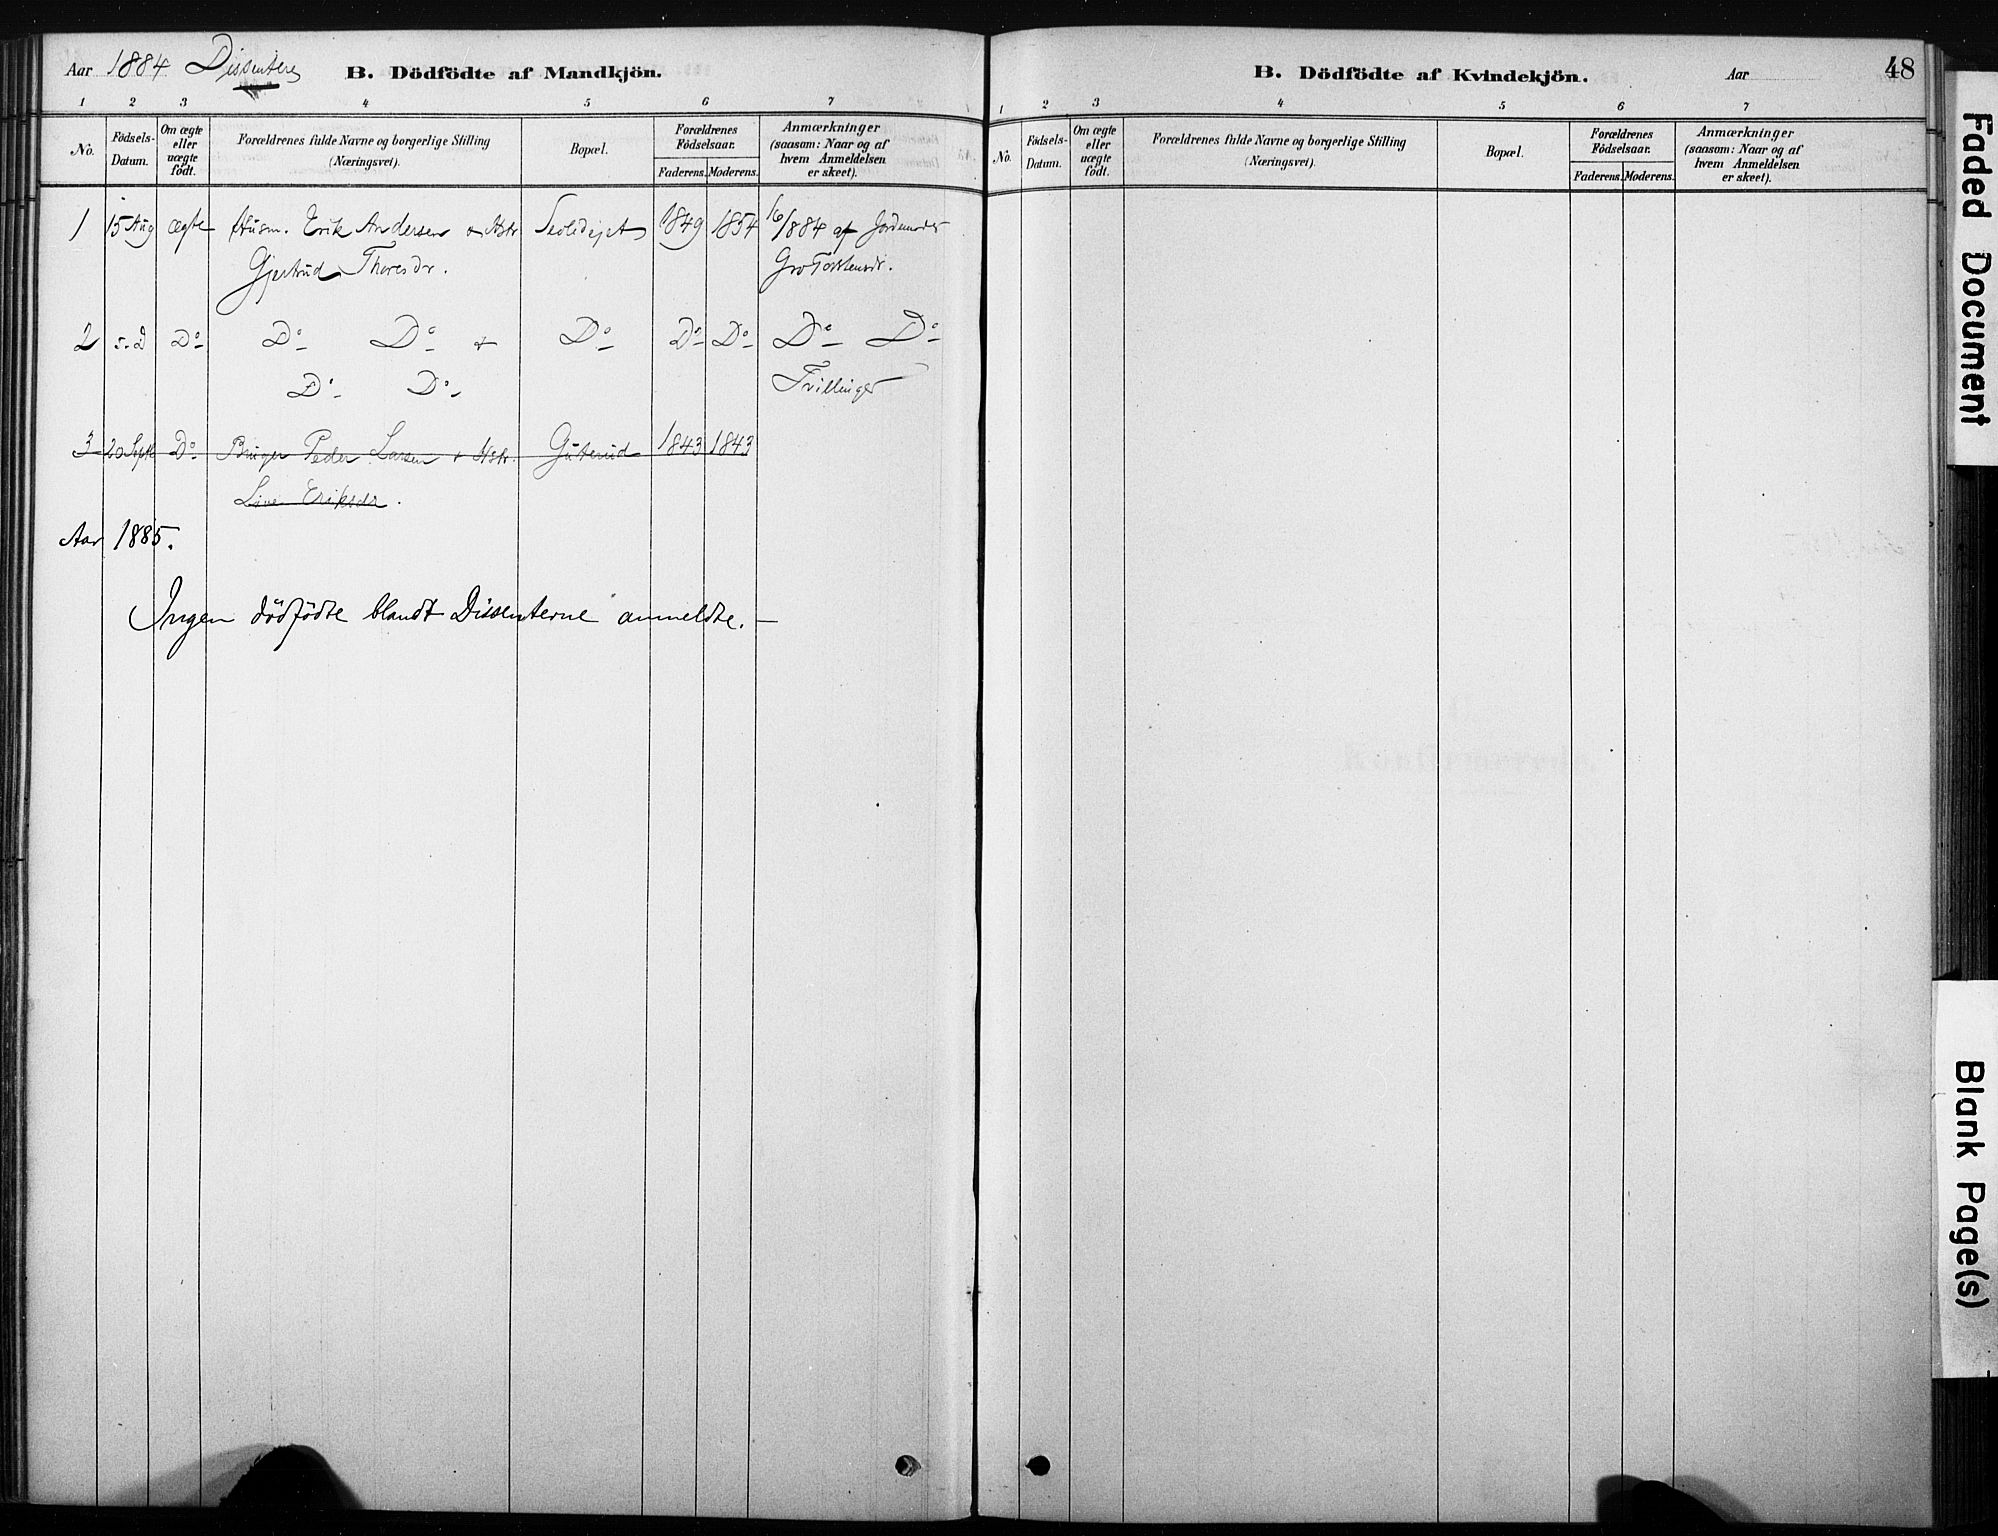 Aar 1884 Dissentere B. Dödfödte af Mandkjön.
1 2 3 4 5 6 7
No. Födsels-Datum. Om ægte eller uægte födt. Forældrenes fulde Navne og borgerlige Stilling (Næringsvei). Bopæl. Forældrenes Födselsaar. Faderens. Moderens. Anmærkninger (saasom: Naar og af hvem Anmeldelsen er skeet).
1 15 Aug ægte Husm. Erik Andersen & Hstr 1849 1854 16/884 af Jordemoder
Gjertrud Thoresdr. Gro
2 Do Do Do & Do Do Do Do Do
Do Do Tvillinger
3 20 Sept Do Bruger Peder Larsen & Hstr. Guterud 1843 1843
Live Eriksdr.
Aar 1885.
Ingen dödfödte blandt Dissenterne anmeldte.-
B. Dödfödte af Kvindekjön. Aar 48
1 2 3 4 5 6 7
No. Födsels-Datum. Om ægte eller uægte födt. Forældrenes fulde Navne og borgerlige Stilling (Næringsvei). Bopæl. Forældrenes Födselsaar. Faderens. Moderens. Anmærkninger (saasom: Naar og af hvem Anmeldelsen er skeet).
Faded Document
Blank Page(s)